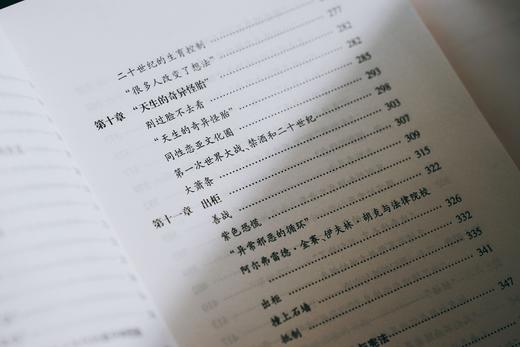 二十世纪的生育控制 277
“很多人改变了想法” 282
第十章 “天生的奇异怪胎” 282
别过脸不去看 285
“天生的奇异怪胎” 293
同性恋亚文化圈 298
第一次世界大战、禁酒和二十世纪 303
大萧条 307
第十一章 出柜 309
善战 315
紫色恐慌 322
“异常邪恶的循环” 326
阿尔弗雷德·金赛、伊夫林·胡克与法律院校 332
出柜 335
撞上石墙 341
抵制 347